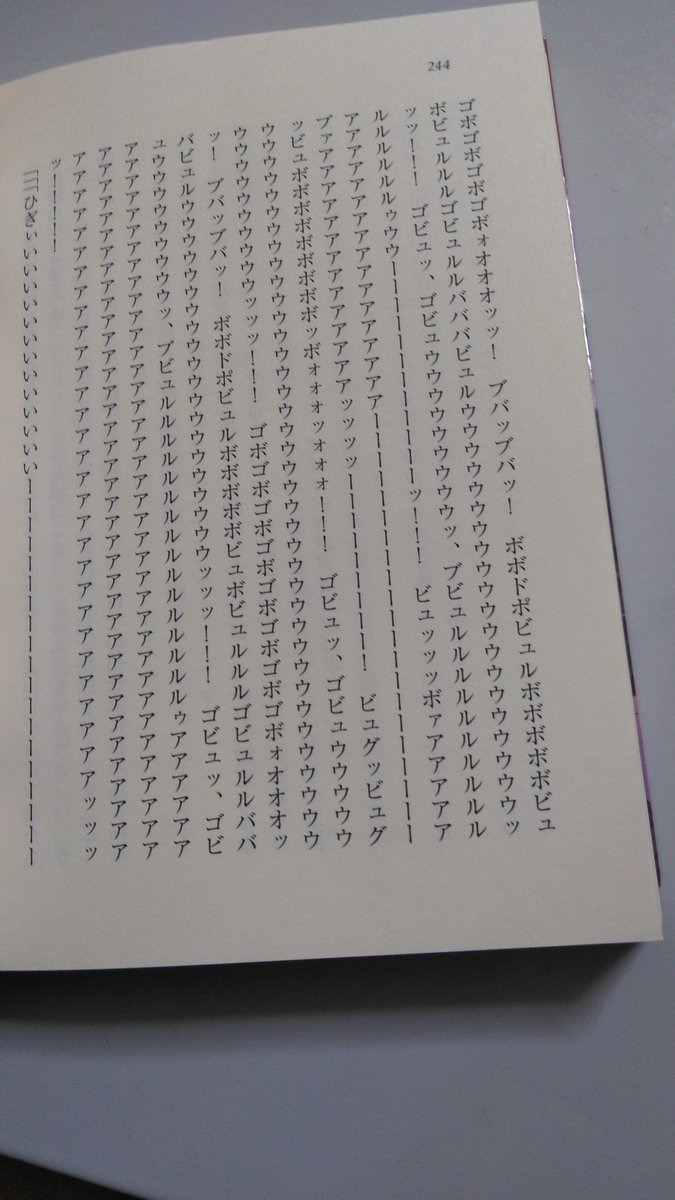 244
ゴボゴボゴボゴボォオオオオッッ！　ブバッブバッ！　ボボドポビュルボボボボボビュ
ボビュルルルゴビュルルバババビュルウウウウウウウウウウウウウウウウウウウウウッ
ッッ！！！　ゴビュッ、ゴビュウウウウウウウウウウッ、ブビュルルルルルルルルルル
ルルルルルルゥウウーーーーーーーーーーーッ！！！　ビュッッッボァアアアアア
アアアアアアアアアアアアアアアアーーーーーーーーーーーーーーーーーーーーーー
ブァアアアアアアアアアアアアアアアッッッッーーーーーーーー！　ビュグッビュグ
ッビュボボボボボボボボボボッボォォォッォォォ！！！　ゴビュッ、ゴビュウウウウウ
ウウウウウウウウウウウウウウウウウウウウウウウウウウウウウウウウウウウウウウ
ウウウウウウウウウウウウッッッ！！！　ゴボゴボゴボゴボゴボゴボゴボォオオオオッ
ッ！　ブバッブバッ！　ボボドポビュルボボボボボビュボビュルルルゴビュルルババ
バビュルウウウウウウウウウウウウウウウウウウウウウッッッ！！！　ゴビュッ、ゴビ
ュウウウウウウウウウウッ、ブビュルルルルルルルルルルルルルルルルゥアアアアアア
アアアアアアアアアアアアアアアアアアアアアアアアアアアアアアアアアアアアアア
アアアアアアアアアアアアアアアアアアアアアアアアアアアアアアアアアアアアアア
アアアアアアアアアアアアアアアアアアアアアアアアアアアアアアアアアアアッッッ
ッ！！！！！
「「「ひぎぃいいいいいいいいいいいいいいーーーーーーーーーーーーーーーーーーーー